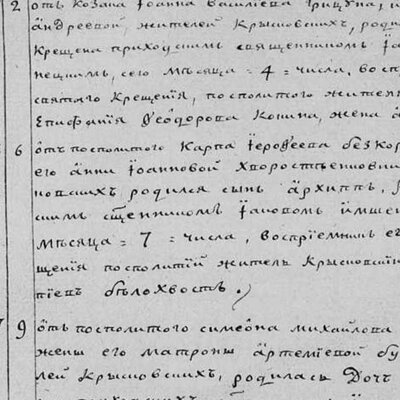 2 отъ козака Іоанна Василіева Грицуна, и
Андреевой, жителей Крысовскихъ, роди
Крещена приходскимъ священникомъ Іа
нецкимъ, сего мѣсяца = 4 = числа, воспр
святаго Крещенія, посполитого жителя
Епифанія Ѳеодорова Конина, жена а
6 отъ посполитого Карпа Іероѳеева без кор
его Анни Іоанновой Хворостенковни
новскихъ, родился сынъ Архиппъ,
скимъ сщенникомъ Іаковомъ
мѣсяца = 7 = числа, воспріемникъ ег
щенія посполитій житель Крысовскій
тіевъ бѣлохвостъ.
9 отъ посполитого симеона михайлова
жены его матроны артеміевой бу
лей Крысовскихъ, родилась Дочь